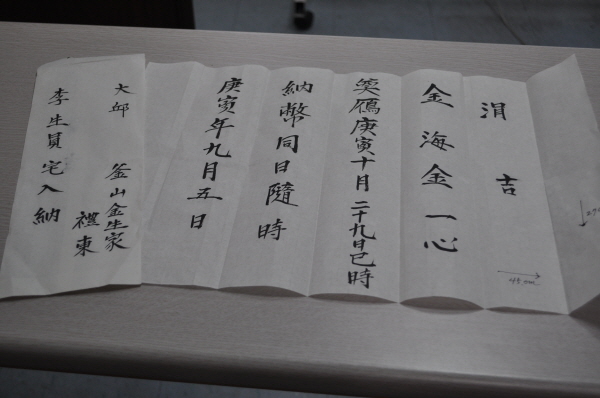 涓吉
金海金一心
奠鴈庚寅十月二十九日巳時
納幣同日隨時
庚寅年九月五日
釜山金生家
禮東
大邱
李生員宅入納